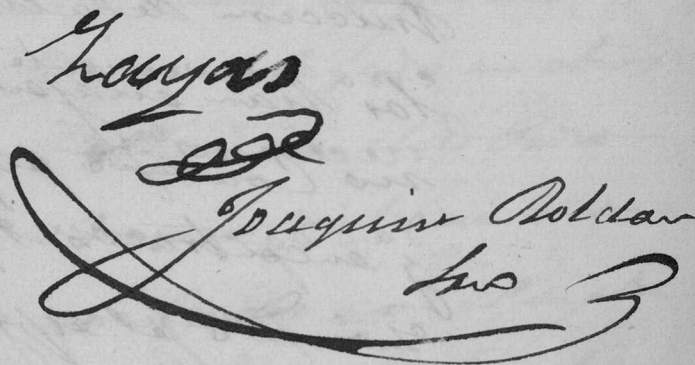 Zayas
Joaquin Roldan